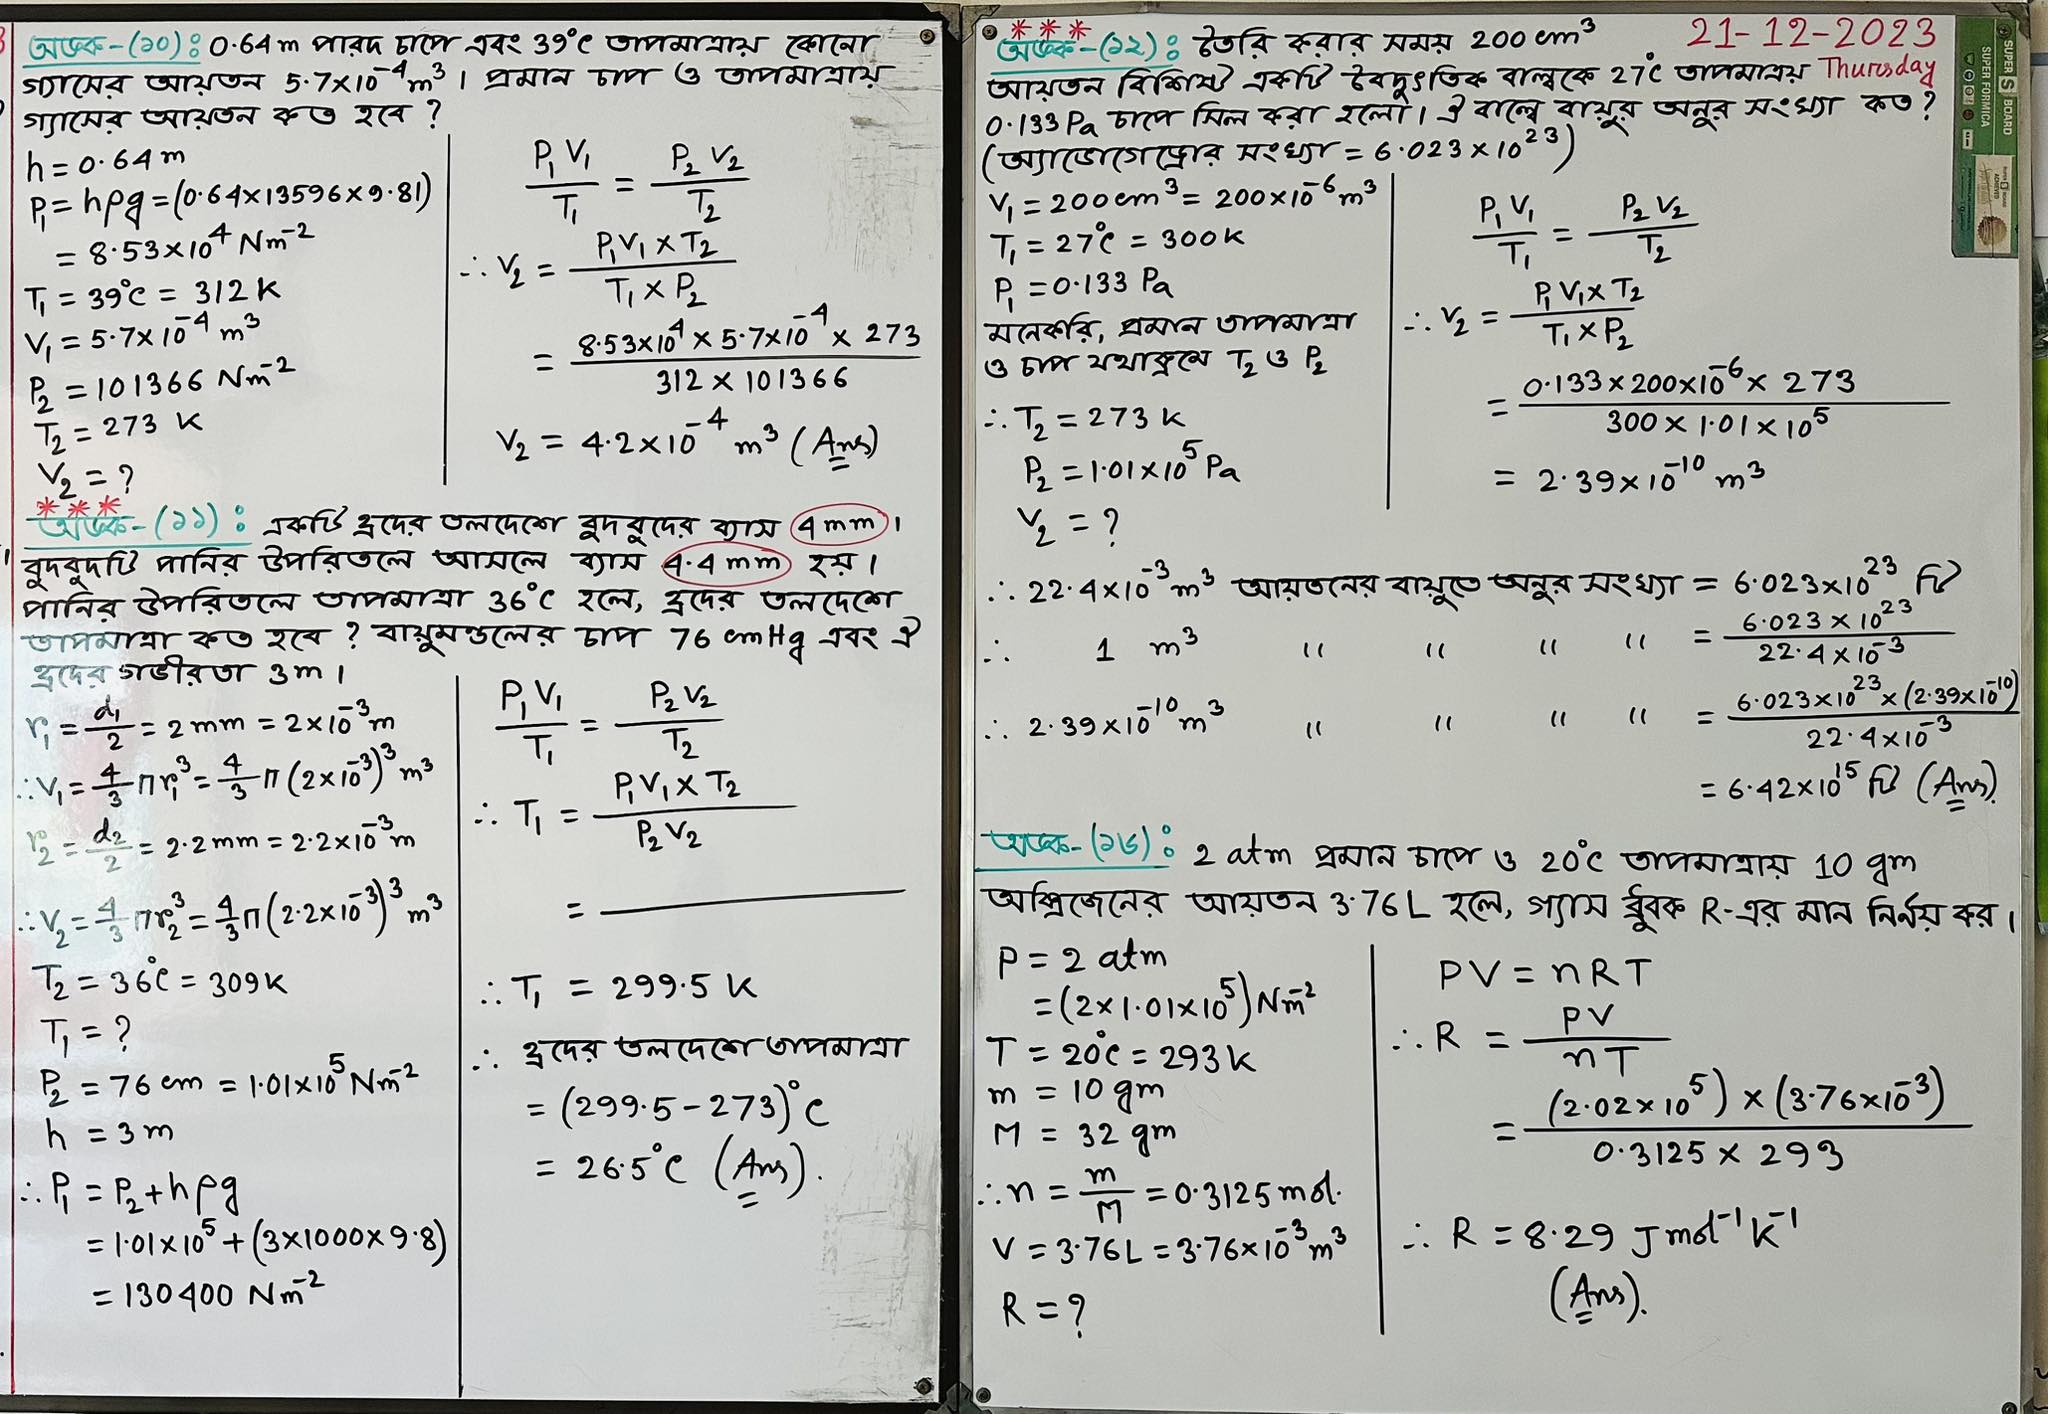 অংক-(১০): 0.64 m পারদ চাপে এবং 39°C তাপমাত্রায় কোনো
গ্যাসের আয়তন 5.7×10⁻⁴ m³। প্রমান চাপ ও তাপমাত্রায়
গ্যাসের আয়তন কত হবে?
h = 0.64 m
P₁ = hρg = (0.64×13596×9.81)
= 8.53×10⁴ Nm⁻²
T₁ = 39°C = 312 K
V₁ = 5.7×10⁻⁴ m³
P₂ = 101366 Nm⁻²
T₂ = 273 K
V₂ = ?
P₁V₁/T₁ = P₂V₂/T₂
∴ V₂ = P₁V₁×T₂ / T₁×P₂
= 8.53×10⁴ × 5.7×10⁻⁴ × 273 / 312 × 101366
V₂ = 4.2×10⁻⁴ m³ (Ans)
***
অংক-(১১): একটি হ্রদের তলদেশে বুদবুদের ব্যাস 4 mm।
বুদবুদটি পানির উপরিতলে আসলে ব্যাস 4.4 mm হয়।
পানির উপরিতলে তাপমাত্রা 36°C হলে, হ্রদের তলদেশে
তাপমাত্রা কত হবে? বায়ুমন্ডলের চাপ 76 cmHg এবং ঐ
হ্রদের গভীরতা 3m।
r₁ = d₁/2 = 2 mm = 2×10⁻³ m
∴ V₁ = 4/3 πr₁³ = 4/3 π (2×10⁻³)³ m³
r₂ = d₂/2 = 2.2 mm = 2.2×10⁻³ m
∴ V₂ = 4/3 πr₂³ = 4/3 π (2.2×10⁻³)³ m³
T₂ = 36°C = 309 K
T₁ = ?
P₂ = 76 cm = 1.01×10⁵ Nm⁻²
h = 3 m
∴ P₁ = P₂ + hρg
= 1.01×10⁵ + (3×1000×9.8)
= 130400 Nm⁻²
P₁V₁/T₁ = P₂V₂/T₂
∴ T₁ = P₁V₁×T₂ / P₂V₂
=
∴ T₁ = 299.5 K
∴ হ্রদের তলদেশে তাপমাত্রা
= (299.5-273)°C
= 26.5°C (Ans).
***
21-12-2023
Thursday
অংক-(১২): তৈরি করার সময় 200 cm³
আয়তন বিশিষ্ট একটি বৈদ্যুতিক বাল্বকে 27°C তাপমাত্রায়
0.133 Pa চাপে সিল করা হলো। ঐ বাল্বে বায়ুর অনুর সংখ্যা কত?
(অ্যাভোগেড্রোর সংখ্যা = 6.023 × 10²³)
V₁ = 200 cm³ = 200×10⁻⁶ m³
T₁ = 27°C = 300 K
P₁ = 0.133 Pa
মনেকরি, প্রমান তাপমাত্রা
ও চাপ যথাক্রমে T₂ ও P₂
∴ T₂ = 273 K
P₂ = 1.01×10⁵ Pa
V₂ = ?
P₁V₁/T₁ = P₂V₂/T₂
∴ V₂ = P₁V₁×T₂ / T₁×P₂
= 0.133×200×10⁻⁶ × 273 / 300 × 1.01×10⁵
= 2.39×10⁻¹⁰ m³
∴ 22.4×10⁻³ m³ আয়তনের বায়ুতে অনুর সংখ্যা = 6.023×10²³ টি
∴ 1 m³ " " " " = 6.023×10²³ / 22.4×10⁻³
∴ 2.39×10⁻¹⁰ m³ " " " " = 6.023×10²³×(2.39×10⁻¹⁰) / 22.4×10⁻³
= 6.42×10¹⁵ টি (Ans).
অংক-(১৬): 2 atm প্রমান চাপে ও 20°C তাপমাত্রায় 10 gm
অক্সিজেনের আয়তন 3.76 L হলে, গ্যাস ধ্রুবক R-এর মান নির্নয় কর।
P = 2 atm
= (2×1.01×10⁵) Nm⁻²
T = 20°C = 293 K
m = 10 gm
M = 32 gm
∴ n = m/M = 0.3125 mol.
V = 3.76 L = 3.76×10⁻³ m³
R = ?
PV = nRT
∴ R = PV/nT
= (2.02×10⁵) × (3.76×10⁻³) / 0.3125 × 293
∴ R = 8.29 J mol⁻¹ K⁻¹
(Ans).
SUPER S BOARD
SUPER FORMICA